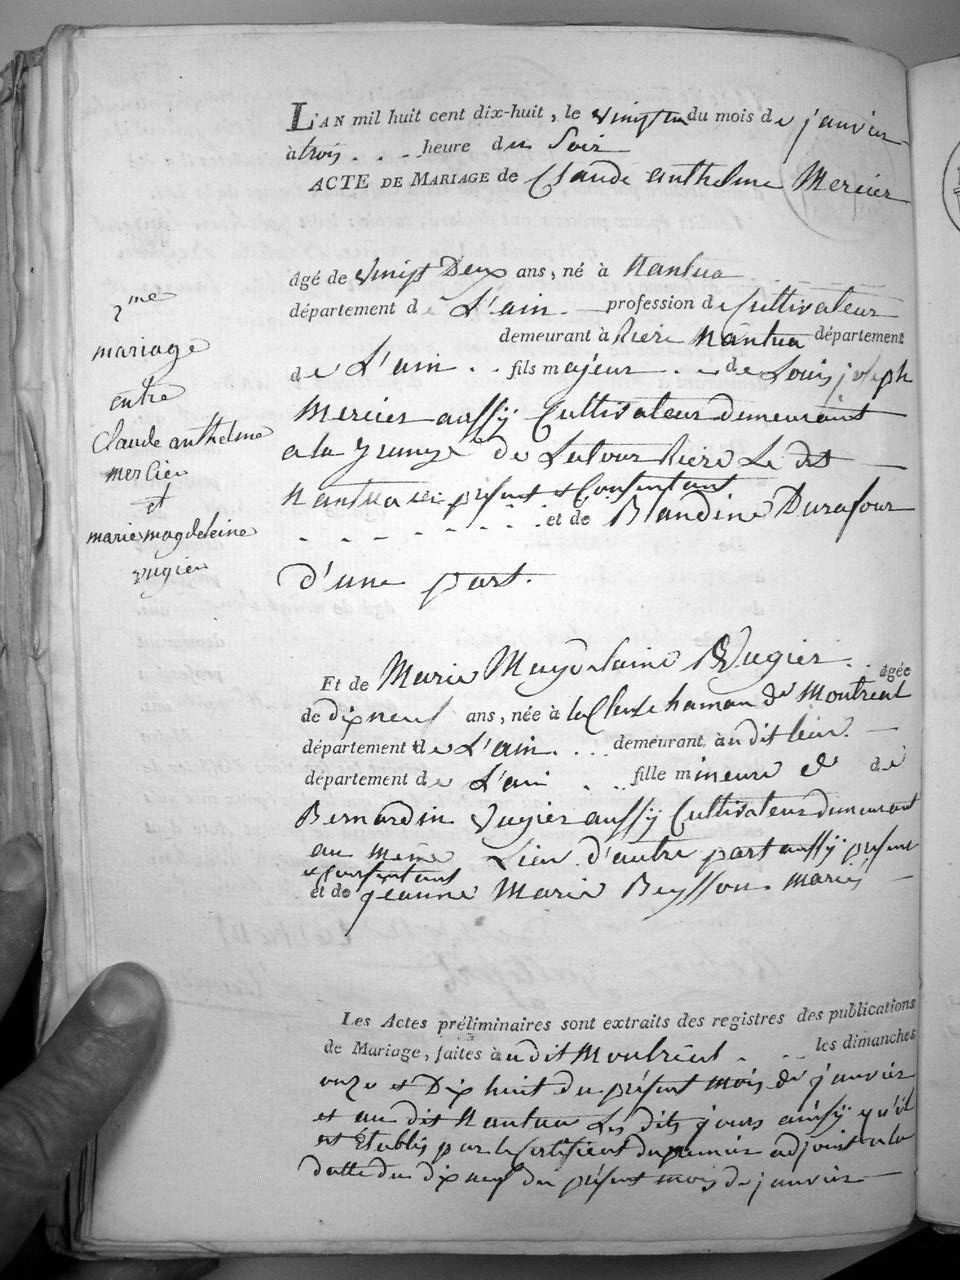 L'AN mil huit cent dix-huit, le vingt du mois de janvier
à trois . . . heure du Soir
ACTE DE MARIAGE de Claude anthelme Mercier
2me
mariage
entre
Claude anthelme
mercier
et
marie magdeleine
vugier
âgé de vingt Deux ans, né à Nantua
département de L'ain. profession de Cultivateur
demeurant à Riere Nantua département
de L'ain . . fils majeur . . de Louis joseph
Mercier aussÿ Cultivateur demeurant
a la grange de Latour Riere Le dit
Nantua ici présent et Consentant
et de Blandine Durafour
d'une part.
Et de Marie Magdelaine Vugier . . agée
de dix neuf ans, née à la hamau de Montreal
département de L'ain . . . demeurant, audit lieu.
département de L'ain . . fille mineure de
Bernardin Vugier aussÿ Cultivateur demeurant
au même Lieu d'autre part aussÿ présent
et Consentant
et de jeanne Marie Beysson mariés
Les Actes préliminaires sont extraits des registres des publications
de Mariage, faites audit Montréal . . . les dimanches
onze et Dix huit du présent mois de janvier
et au dit Nantua Les dits jours ainsÿ qu'il
est Etablis par le Certificat du premier adjoint a la
datte du dix neuf du présent mois de janvier